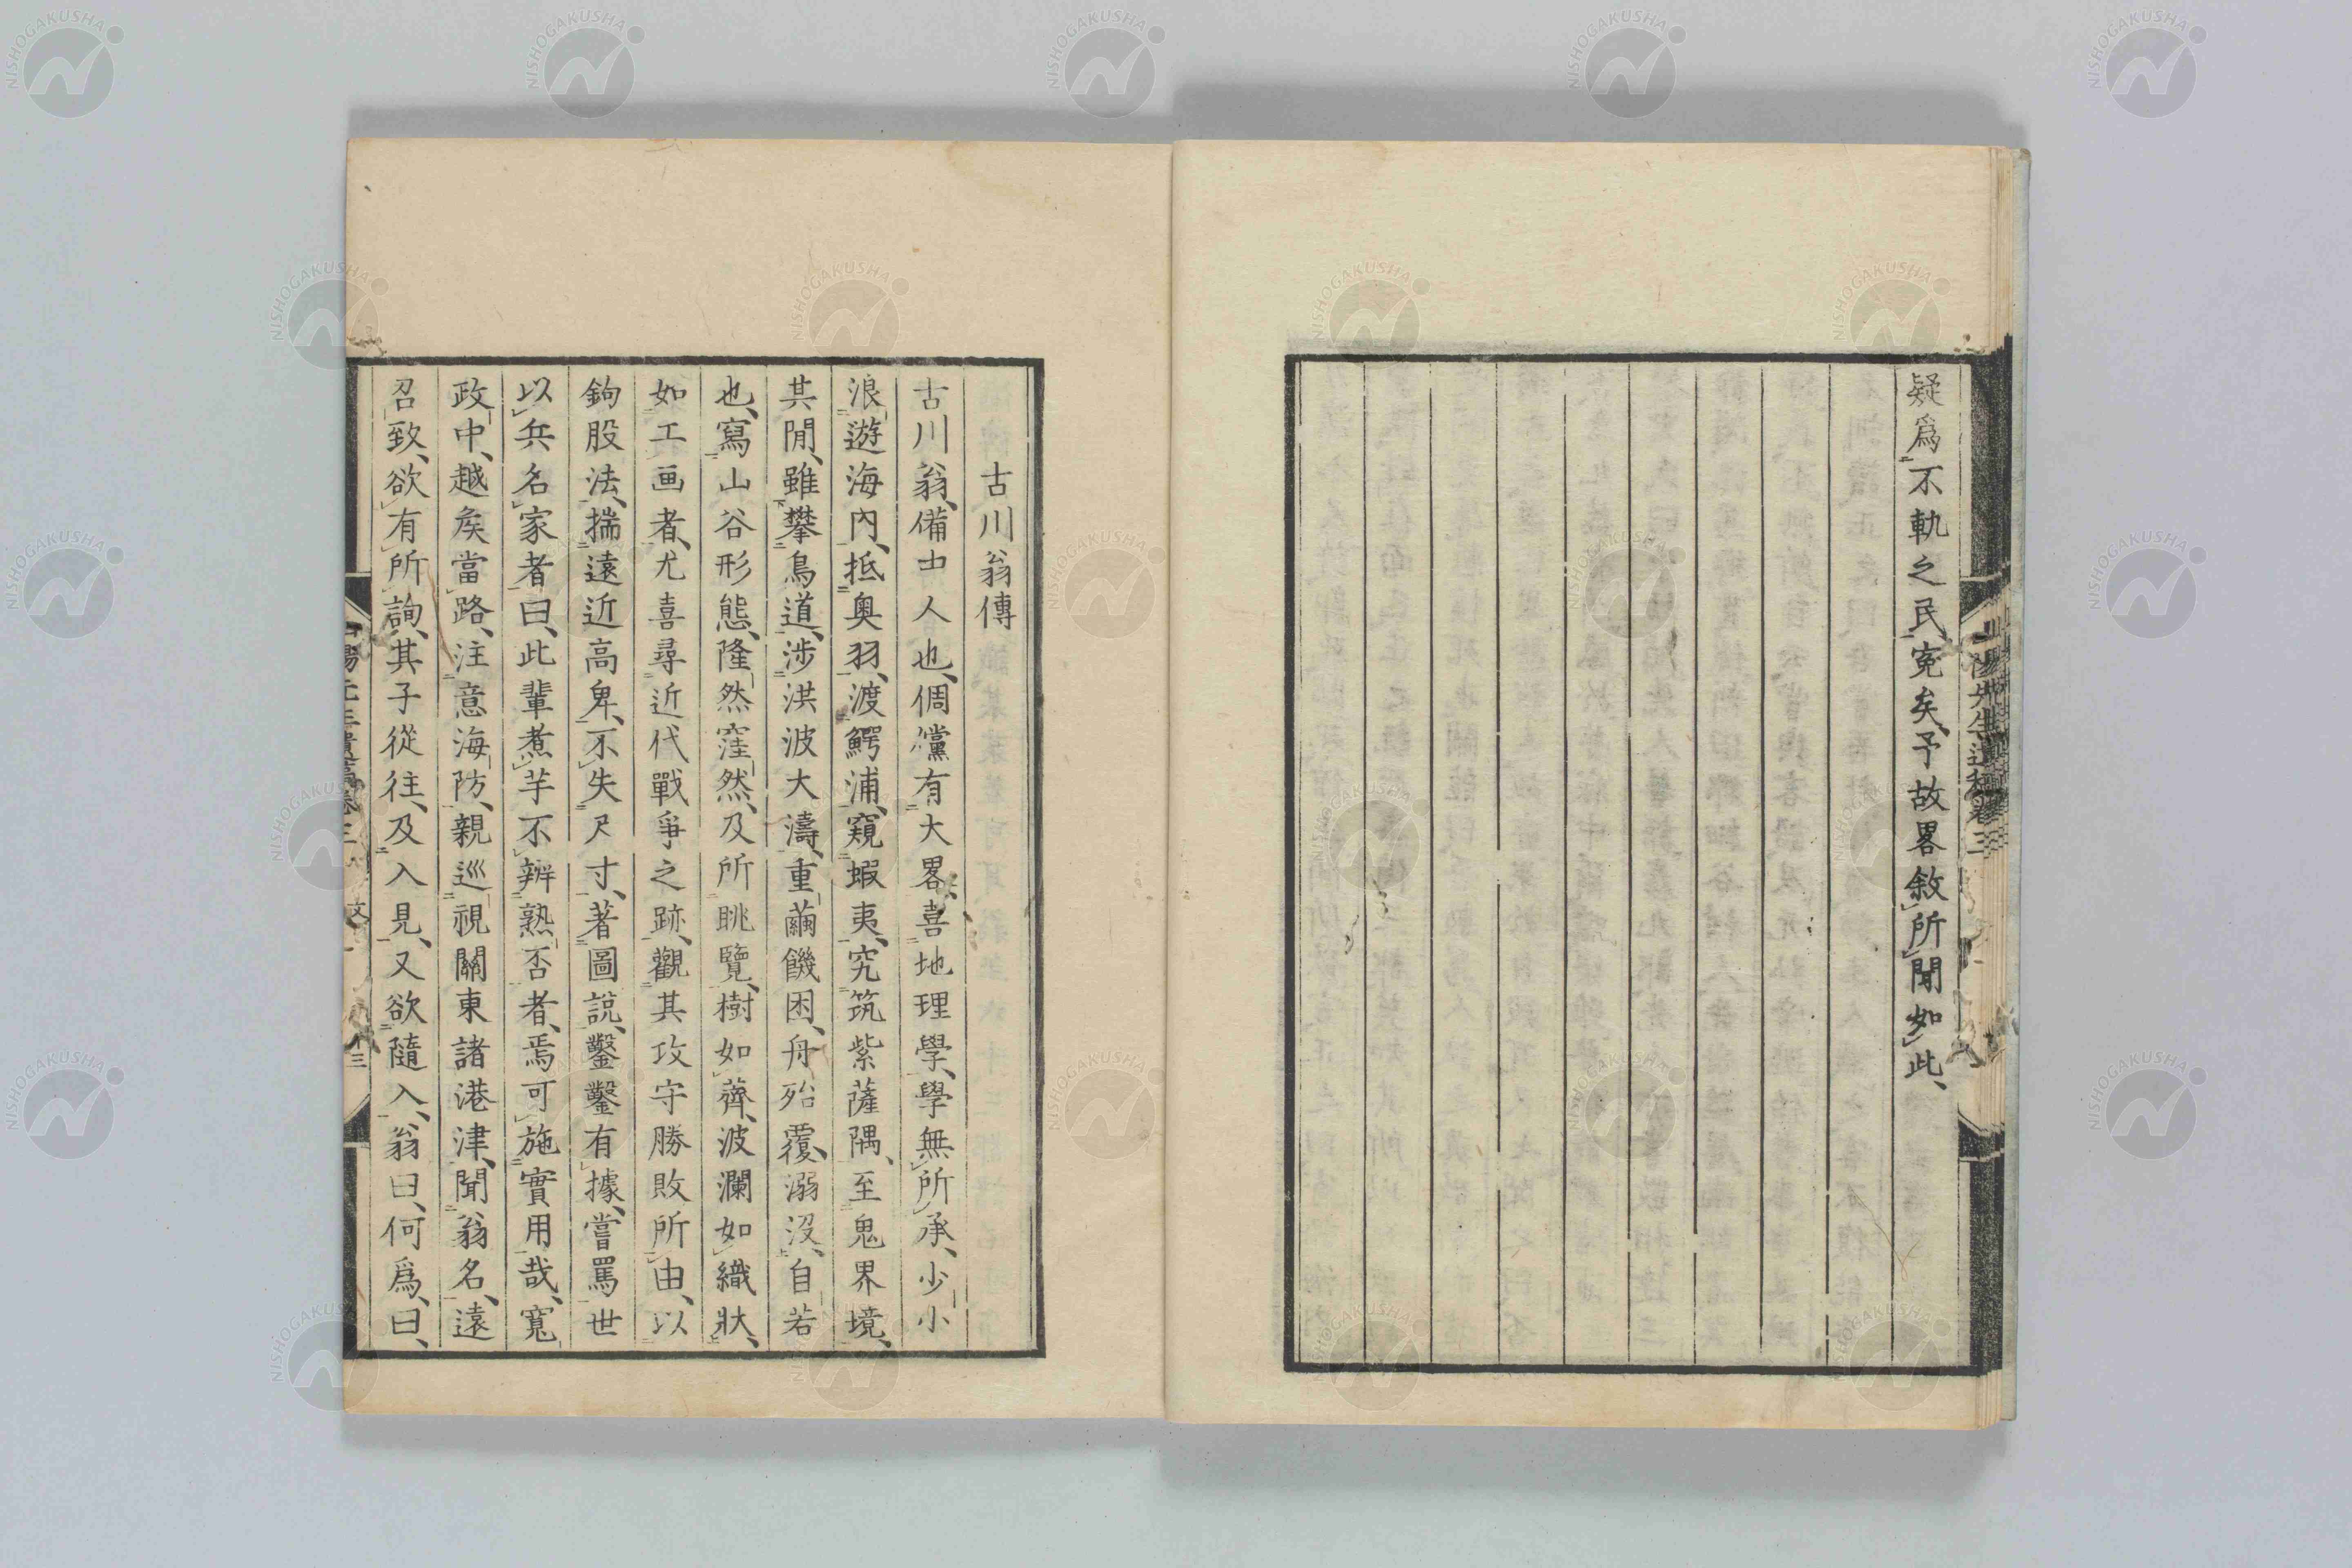 疑爲不軌之民冤矣、予故畧敘所聞如此、
山陽先生遺稿卷三
古川翁傳
古川翁、備中人也、倜儻有大畧、喜地理學、學無所承、少小
浪遊海内、抵奥羽、渡鰐浦、窺蝦夷、究筑紫薩隅、至鬼界境、
其間、雖攀鳥道、涉洪波大濤、重繭饑困、舟殆覆溺没、自若
也、寫山谷形態、隆然窪然、及所眺覽、樹如薺、波瀾如織狀、
如工画者、尤喜尋近代戰爭之跡、觀其攻守勝敗所由、以
鉤股法、揣遠近高卑、不失尺寸、著圖說、鑿鑿有據、嘗罵世
以兵名家者曰、此輩煮芋不辨熟否者、焉可施實用哉、寬
政中、越矦當路、注意海防、親巡視關東諸港津、聞翁名、遠
召致、欲有所詢、其子從往、及入見、又欲隨入、翁曰、何爲、曰、
NISHOGAKUSHA